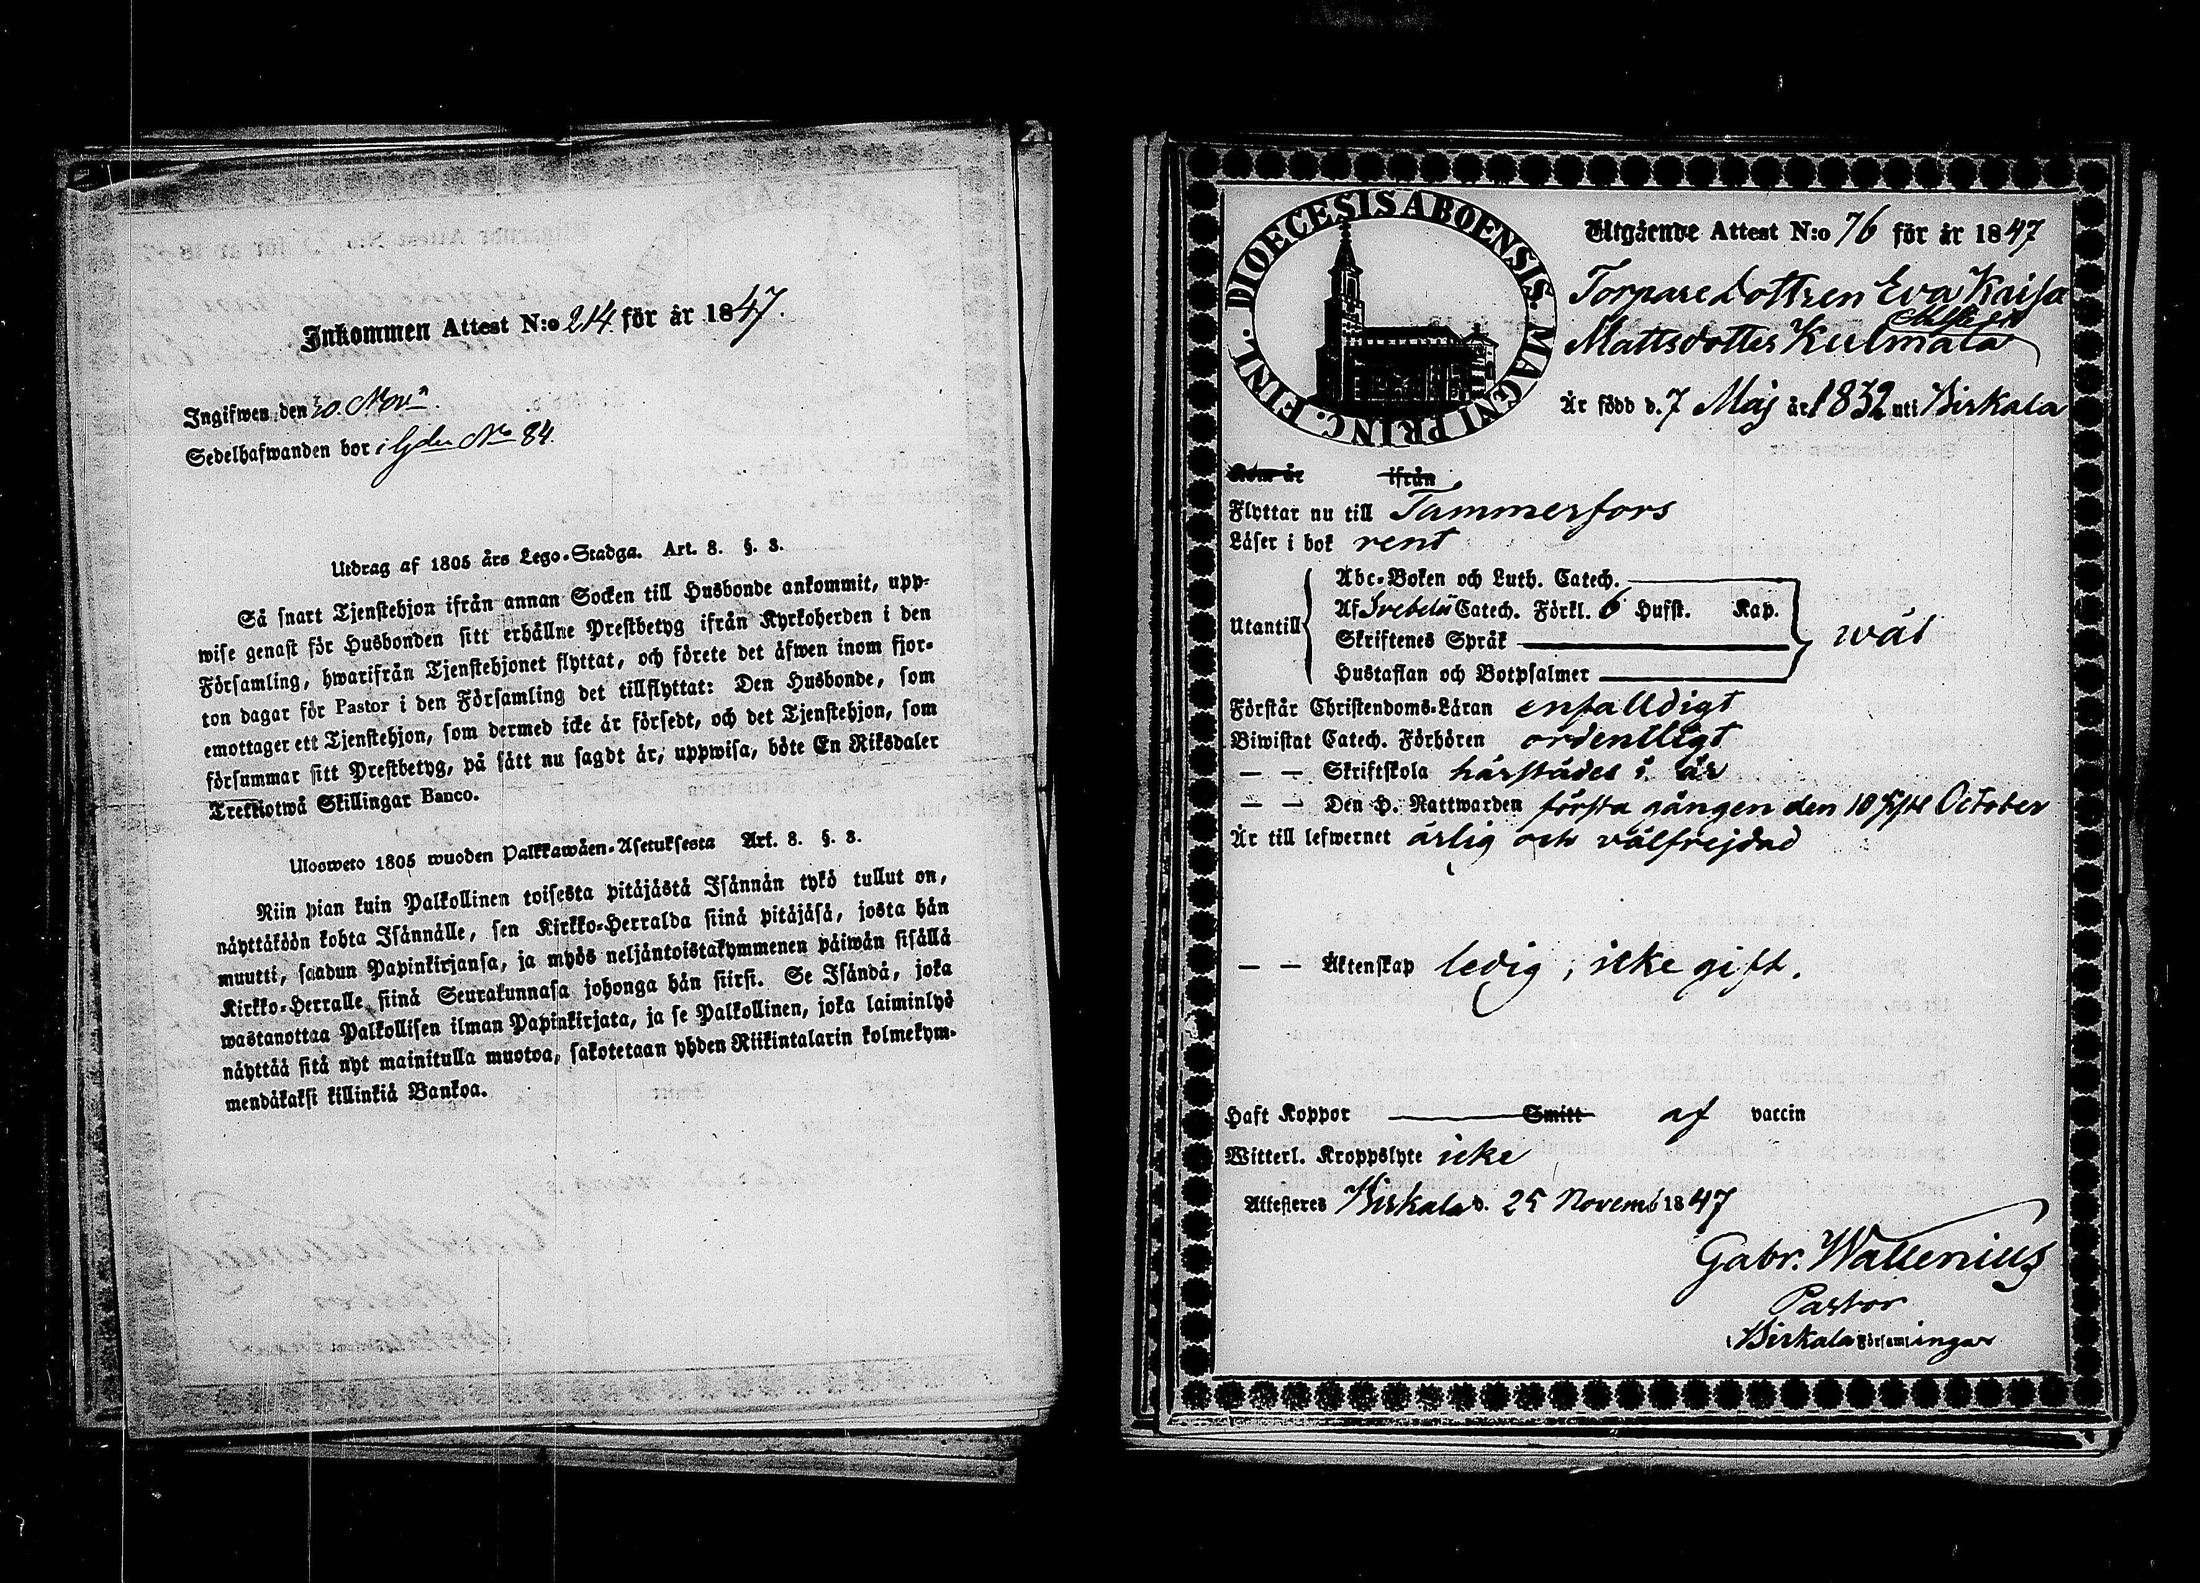 Inkommen Attest N:o 214 för år 1847.
Ingifwen den 30 Nov.
Sedelhafwanden bor i Gden No 84.
Utdrag af 1805 års Lego-Stadga. Art. 8. §. 3.
Så snart Tjenstehjon ifrån annan Socken till Husbonde ankommit, upp-
wise genast för Husbonden sitt erhållne Prestbetyg ifrån Kyrkoherden i den
Församling, hwarifrån Tjenstehjonet flyttat, och förete det äfwen inom fjor-
ton dagar för Pastor i den Församling det tillflyttat: Den Husbonde, som
emottager ett Tjenstehjon, som dermed icke är försedt, och det Tjenstehjon, som
försummar sitt Prestbetyg, på sätt nu sagdt är, uppwisa, böte En Riksdaler
Trettiotwå Skillingar Banco.
Ulosweto 1805 wuoden Palkkawäen-Asetuksesta Art. 8. §. 3.
Niin pian kuin Palkollinen toisesta pitäjästä Isännän tykö tullut on,
näyttäköön kohta Isännälle, sen Kirkko-Herralda siinä pitäjäsä, josta hän
muutti, saadun Papinkirjansa, ja myös neljäntoistakymmenen päiwän sisällä
Kirkko-Herralle siinä Seurakunnasa johonga hän siirsi. Se Isändä, joka
wastanottaa Palkollisen ilman Papinkirjata, ja se Palkollinen, joka laiminlyö
näyttää sitä nyt mainitulla muotoa, sakotetaan yhden Riikintalarin kolmekym-
mendäkaksi killinkiä Bankoa.
DIOECESIS ABOENSIS. MAGNI PRINC. FINL.
Utgående Attest N:o 76 för år 1847
Torparedottren Eva Kaisa
Mattsdotter Kulmala
Är född d. 7 Maj år 1832 uti Birkala
Kom år ifrån
Flyttar nu till Tammerfors
Läser i bok rent
Utantill
Abc-Boken och Luth. Catech.
Af Svebelii Catech. Förkl. 6 Hufst. Kap.
Skriftenes Språk
Hustaflan och Botpsalmer
wäl
Förstår Christendoms-Läran enfalldigt
Biwistat Catech. Förhören ordentligt
— — Skriftskola härstädes i år
— — Den H. Nattwarden första gången den 10 October
Är till lefwernet ärlig och välfrejdad
— — Äktenskap ledig, icke gift.
Haft Koppor Smitt af vaccin
Witterl. Kroppslyte icke
Attesteres Birkala d. 25 Novemb 1847
Gabr. Wallenius
Pastor
i Birkala Församlingar